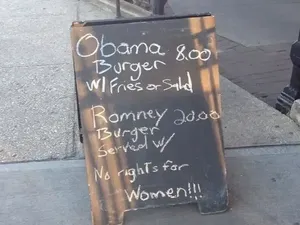 Obama 8.00
Burger
W/ Fries or Salad
Romney 20.00
Burger
Served w/
No rights for
Women!!!